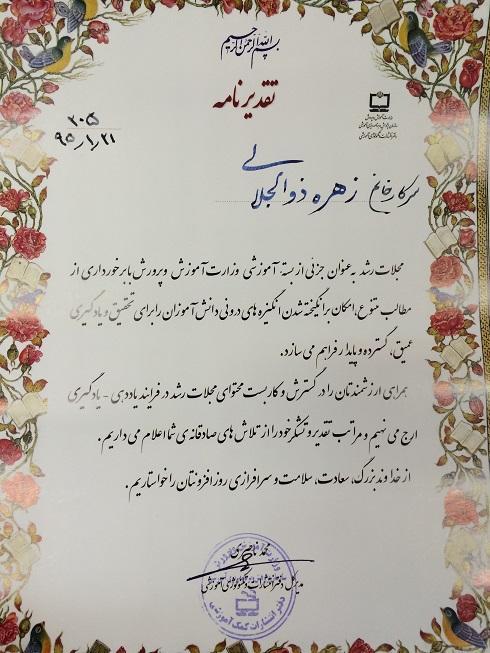 بسم الله الرحمن الرحیم
تقدیرنامه
وزارت آموزش و پرورش
۲۰۵
۹۵/۱/۲۱
سرکار خانم زهره ذوالجلالی
مجلات رشد به عنوان جزئی از بسته آموزشی وزارت آموزش و پرورش با برخورداری از
مطالب متنوع، امکان برانگیخته شدن انگیزه های درونی دانش آموزان را برای تحقیق و یادگیری
عمیق، گسترده و پایدار فراهم می سازد.
همراهی ارزشمندتان را در گسترش و کاربست محتوای مجلات رشد در فرایند یاددهی - یادگیری
ارج می نهیم و مراتب تقدیر و تشکر خود را از تلاش های صادقانه ی شما اعلام می داریم.
از خداوند بزرگ، سعادت، سلامت و سرافرازی روزافزونتان را خواستاریم.
محمد ناصری
مدیرکل دفتر انتشارات و تکنولوژی آموزشی
دفتر انتشارات کمک آموزشی